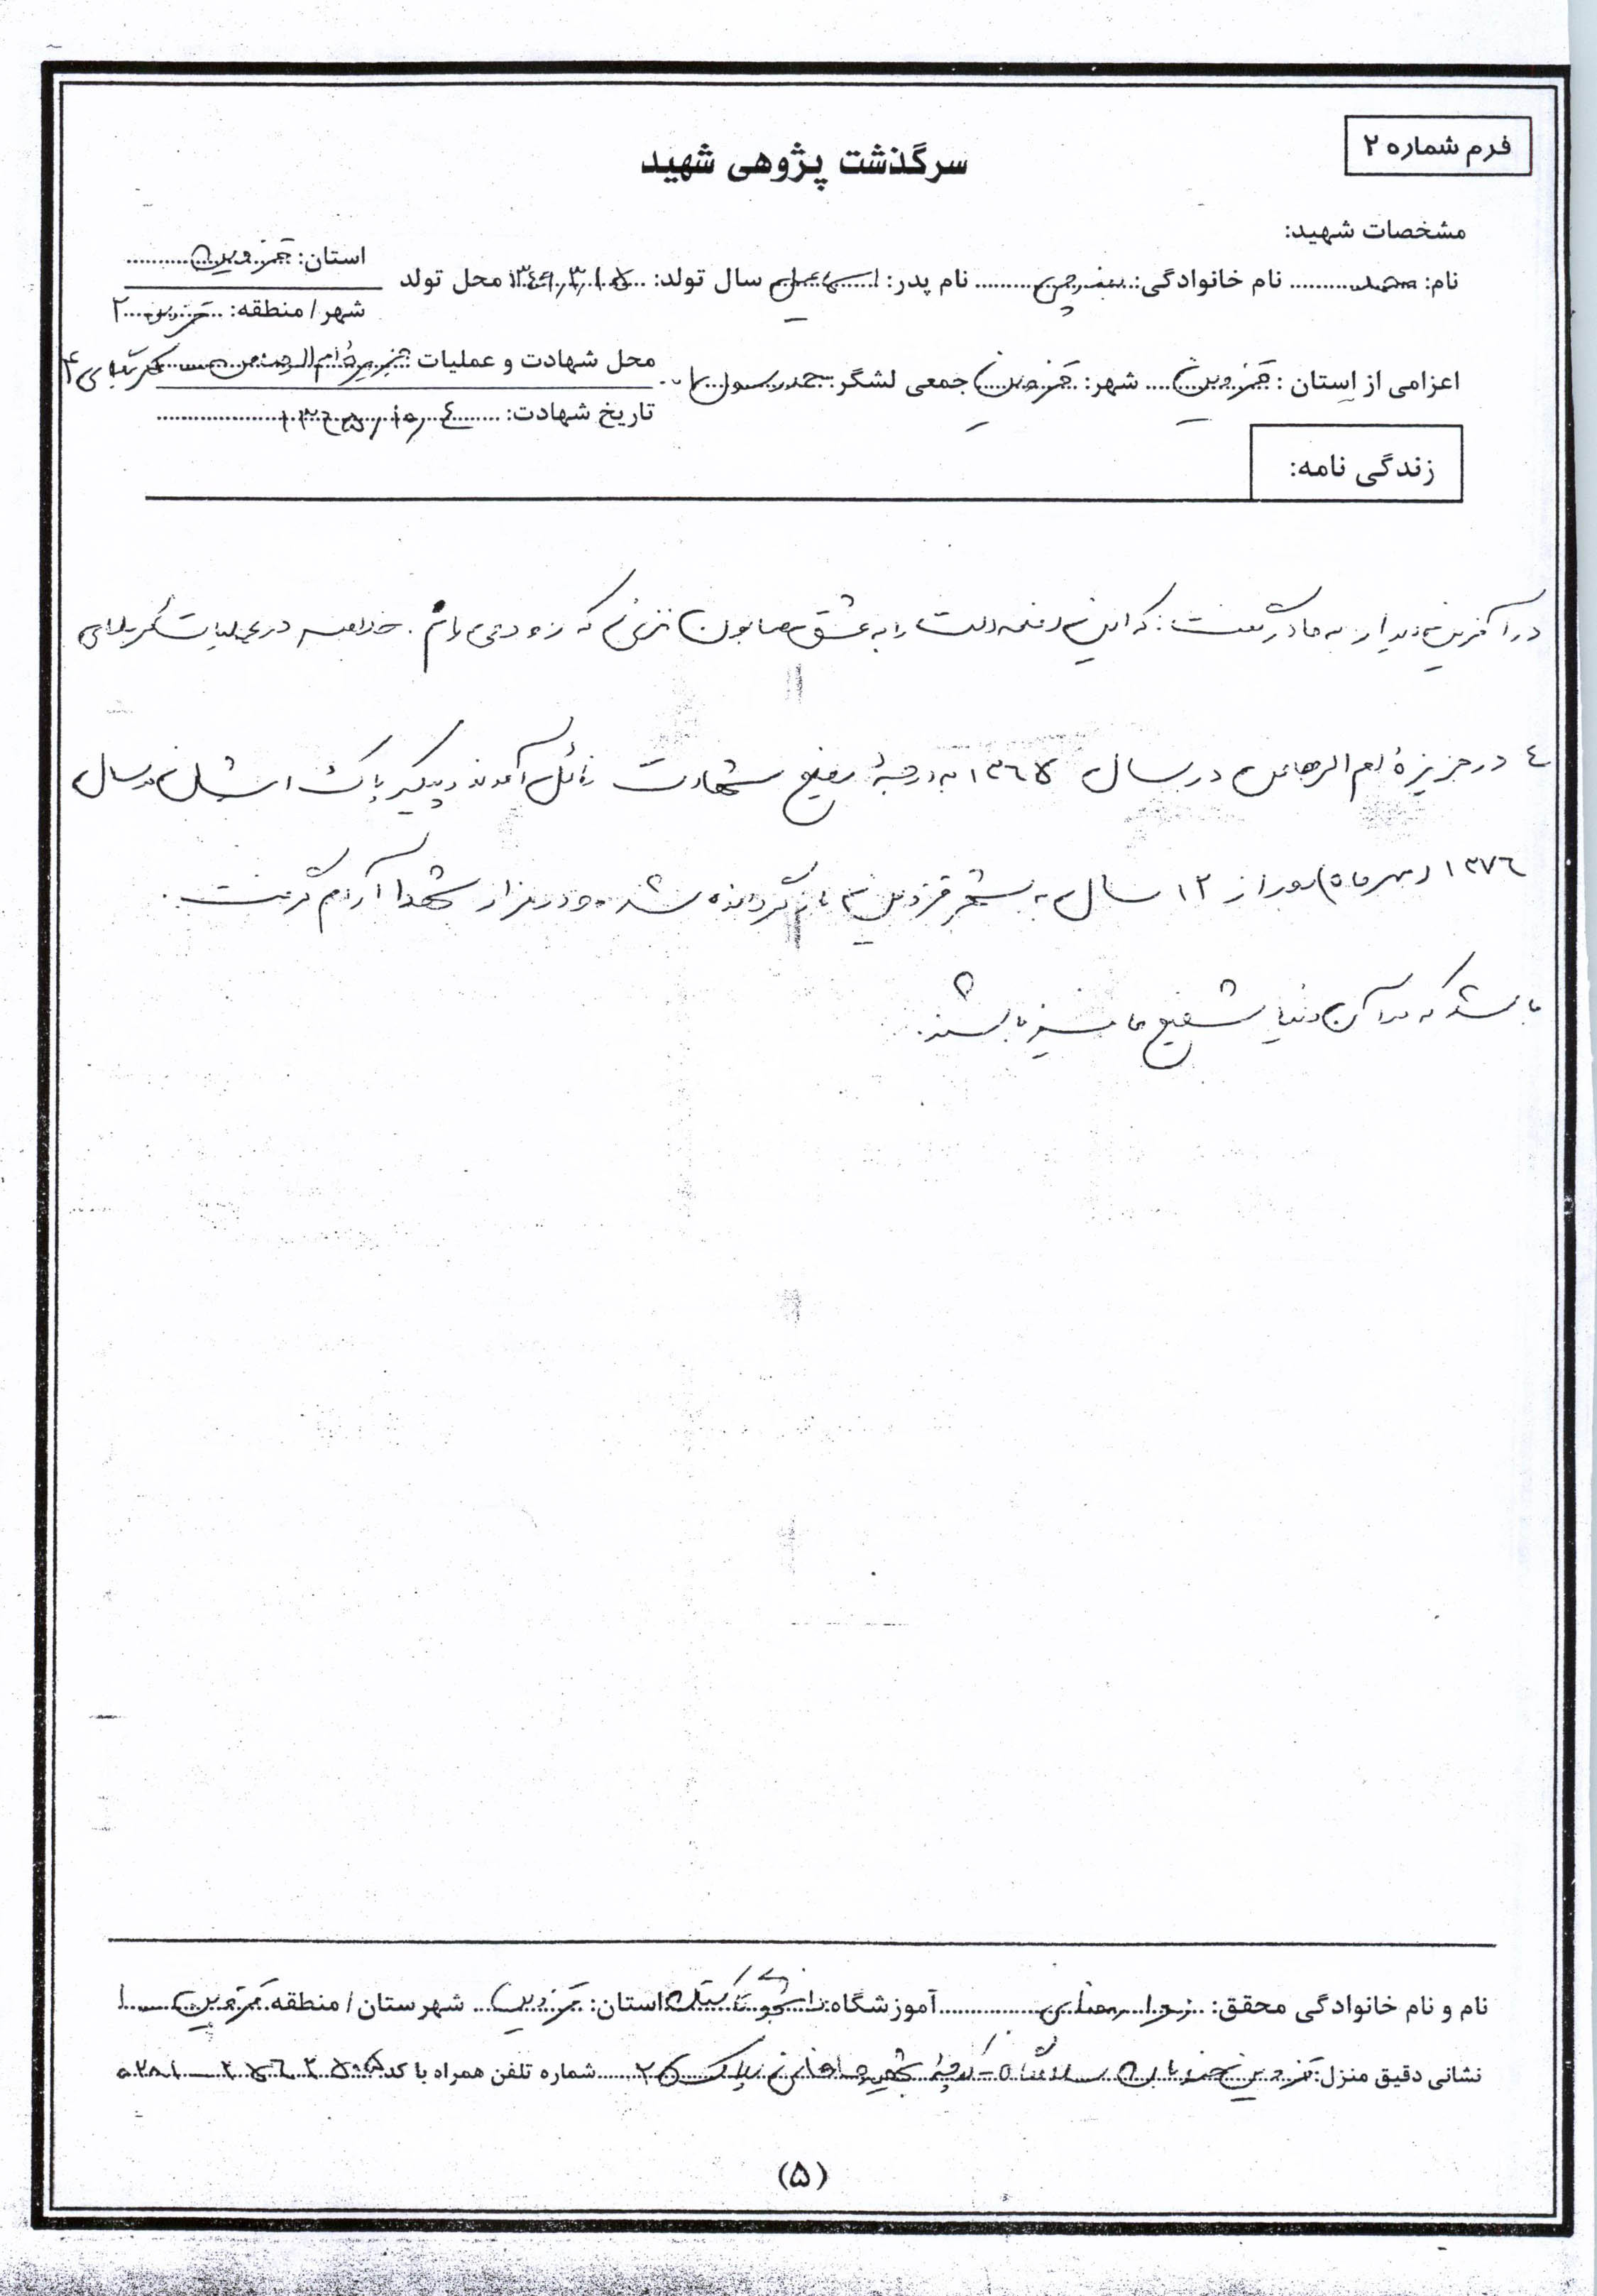 فرم شماره ۲
سرگذشت پژوهی شهید
مشخصات شهید:
نام: محمد نام خانوادگی: نام پدر: اسماعیل سال تولد: محل تولد
استان: قزوین
شهر / منطقه: قزوین ۲
اعزامی از استان : قزوین شهر: قزوین جمعی لشگر:
محل شهادت و عملیات جزیره ام الرصاص کربلای ۴
تاریخ شهادت: ۱۳٦۵/۱۰/٤
زندگی نامه:
در آخرین دیدار به مادر گفت: که این دفعه دلت را به عشق صابون نزن که زود می‌آیم. خلاصه در عملیات کربلای
٤ در جزیرهٔ ام الرصاص در سال ۱۳٦۵ به درجهٔ رفیع شهادت نائل آمدند و پیکر پاک ایشان در سال
۱۳۷٦ (مهرماه) بعد از ۱۲ سال به شهر قزوین بازگردانده شد و در مزار شهدا آرام گرفت.
باشد که در آن دنیا شفیع ما نیز باشند.
نام و نام خانوادگی محقق: زهرا رمضانی آموزشگاه: استان: قزوین شهرستان / منطقه قزوین ۱
نشانی دقیق منزل: قزوین خیابان پلاک شماره تلفن همراه با کد:
(۵)